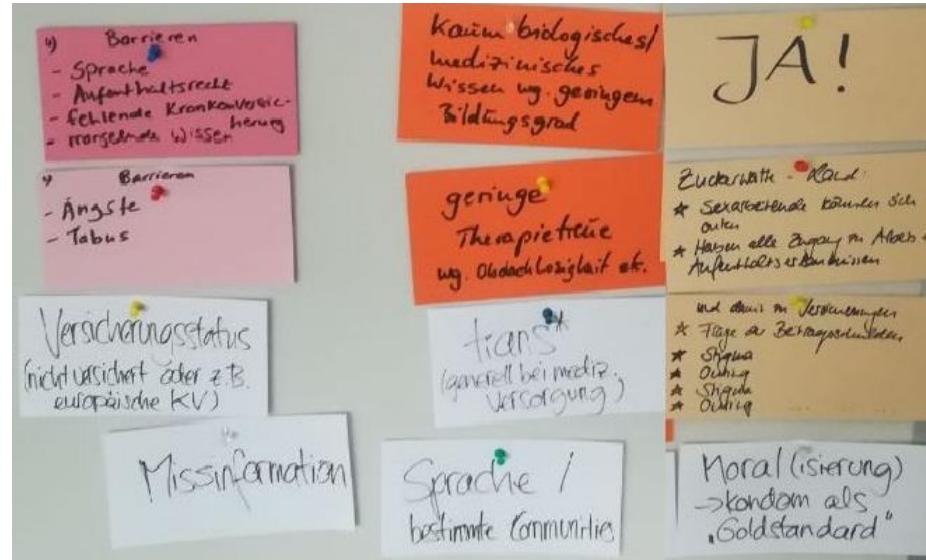 4) Barrieren
- Sprache
- Aufenthaltsrecht
- fehlende Krankenversicherung
- mangelndes Wissen
Barrieren
- Ängste
- Tabus
Versicherungsstatus
(nicht versichert oder z.B.
europäische KV)
Missinformation
Kaum biologisches/
medizinisches
Wissen wg. geringem
Bildungsgrad
geringe
Therapietreue
wg. Obdachlosigkeit etc.
trans*
(generell bei mediz.
Versorgung)
Sprache /
bestimmte Communities
JA!
Zuckerwatte - Land:
* Sexarbeitende können sich
outen
* Haben alle Zugang zu Arbeits
Aufenthaltserlaubnissen
und damit zu Versicherungen
* Frage der Beitragsschulden
* Stigma
* Outing
* Stigma
* Outing
Moral(isierung)
→ Kondom als
„Goldstandard"